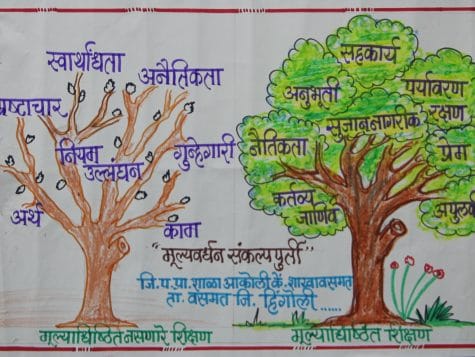 स्वार्थांधता
अनैतिकता
भ्रष्टाचार
नियम
उल्लंघन
गुन्हेगारी
अर्थ
काम
सहकार्य
अनुभूती
पर्यावरण
रक्षण
सुजाण नागरीक
नैतिकता
प्रेम
कर्तव्य
जाणिव
"मूल्यवर्धन संकल्पपुर्ती"
जि.प.प्रा.शाळा आकोली के.शाखा वसमत
ता. वसमत जि. हिंगोली ......
मूल्याधिष्ठित नसणारे शिक्षण
मूल्याधिष्ठित शिक्षण